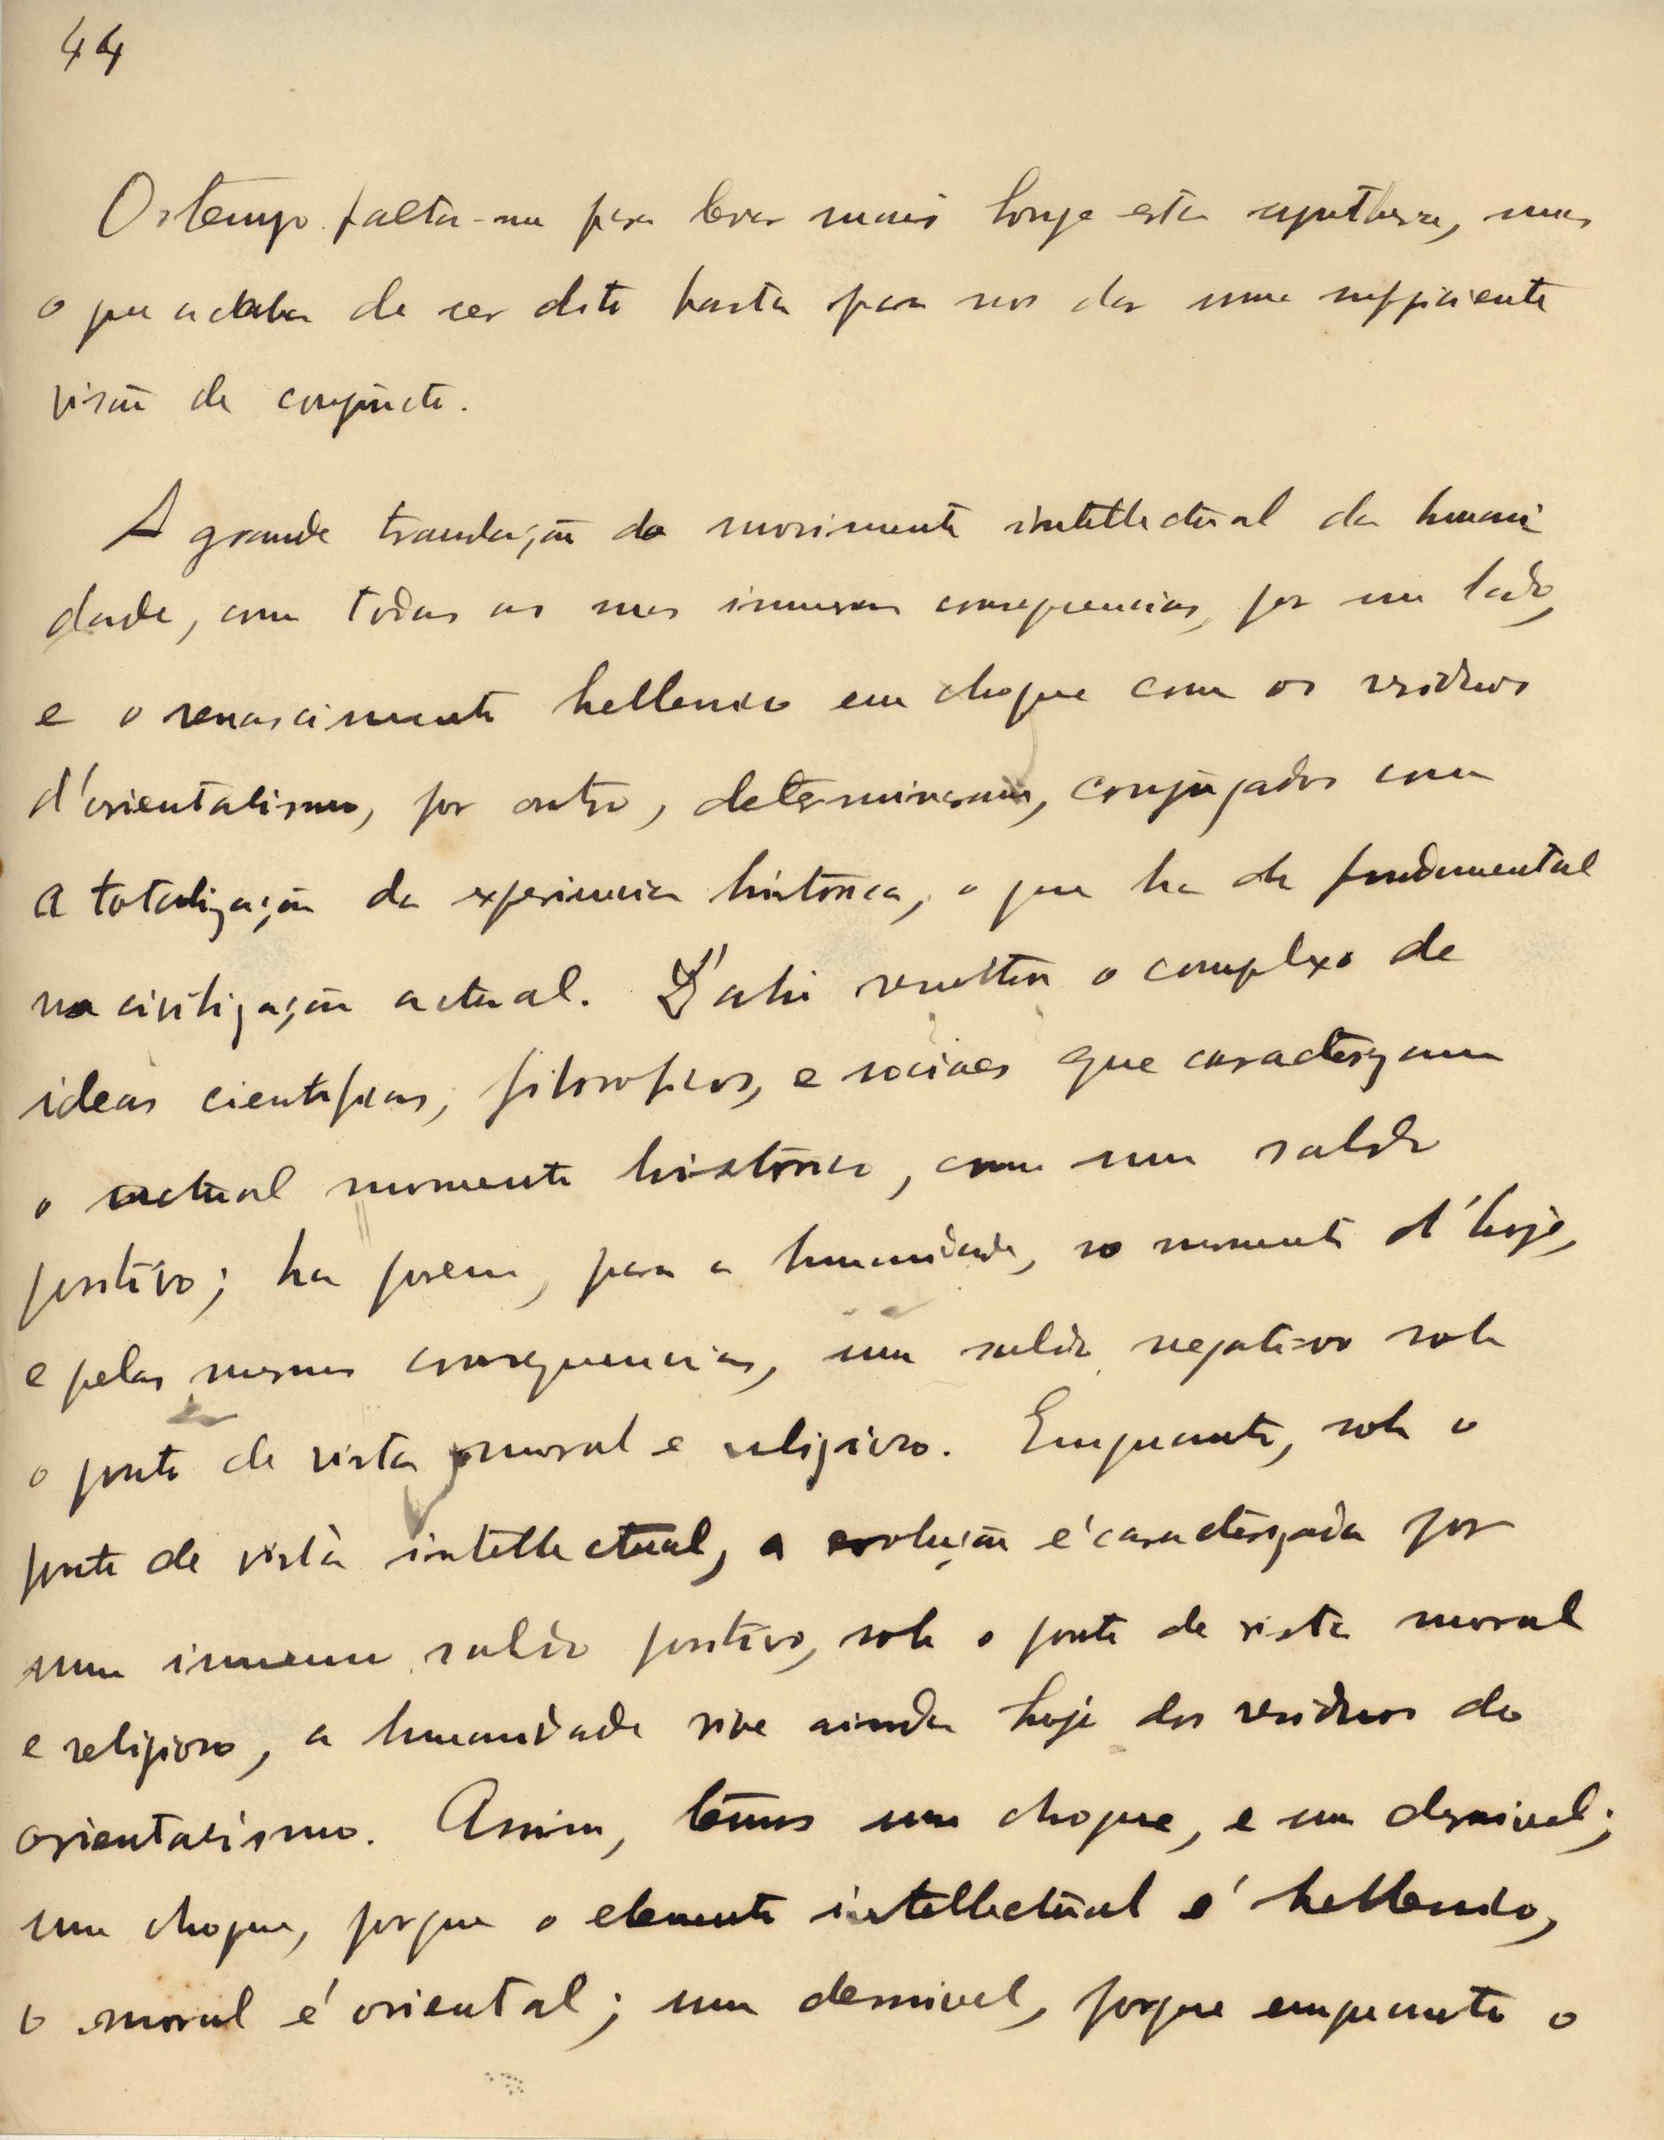 44
O tempo falta-me para levar mais longe esta synthese, mas
o que acaba de ser dito basta para nos dar uma sufficiente
visão de conjuncto.
A grande translação do movimento intellectual da humani
dade, com todas as suas immensas consequencias, por um lado,
e o renascimento hellenico em choque com os residuos
d'orientalismo, por outro, determinaram, conjugados com
a totalização da experiencia historica, o que ha de fundamental
na civilização actual. D'ahi resulta o complexo de
ideas cientificas, filosoficas, e sociaes que caracterizam
o actual momento historico, com um saldo
positivo; ha porem, para a humanidade, no momento d'hoje,
e pelas mesmas consequencias, um saldo negativo sob
o ponto de vista moral e religioso. Emquanto, sob o
ponto de vista intellectual, a evolução é caracterizada por
um immenso saldo positivo, sob o ponto de vista moral
e religioso, a humanidade vive ainda hoje dos residuos do
orientalismo. Assim, temos um choque, e um desnivel;
um choque, porque o elemento intellectual é hellenico,
o moral é oriental; um desnivel, porque emquanto o